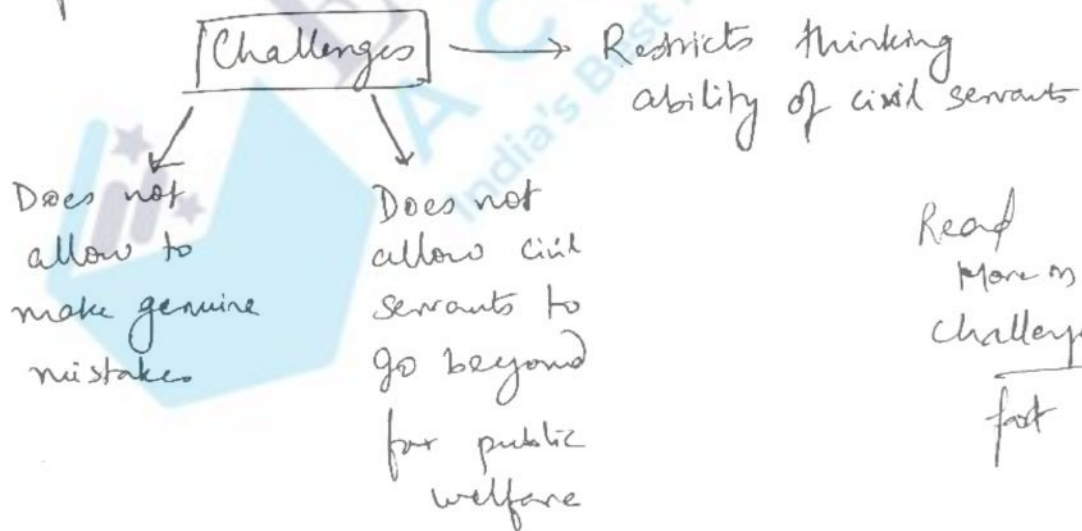 Challenges
Restricts thinking
ability of civil servants
Does not
allow to
make genuine
mistakes
Does not
allow civil
servants to
go beyond
for public
welfare
Read
More on
Challenge
fast
India's Best